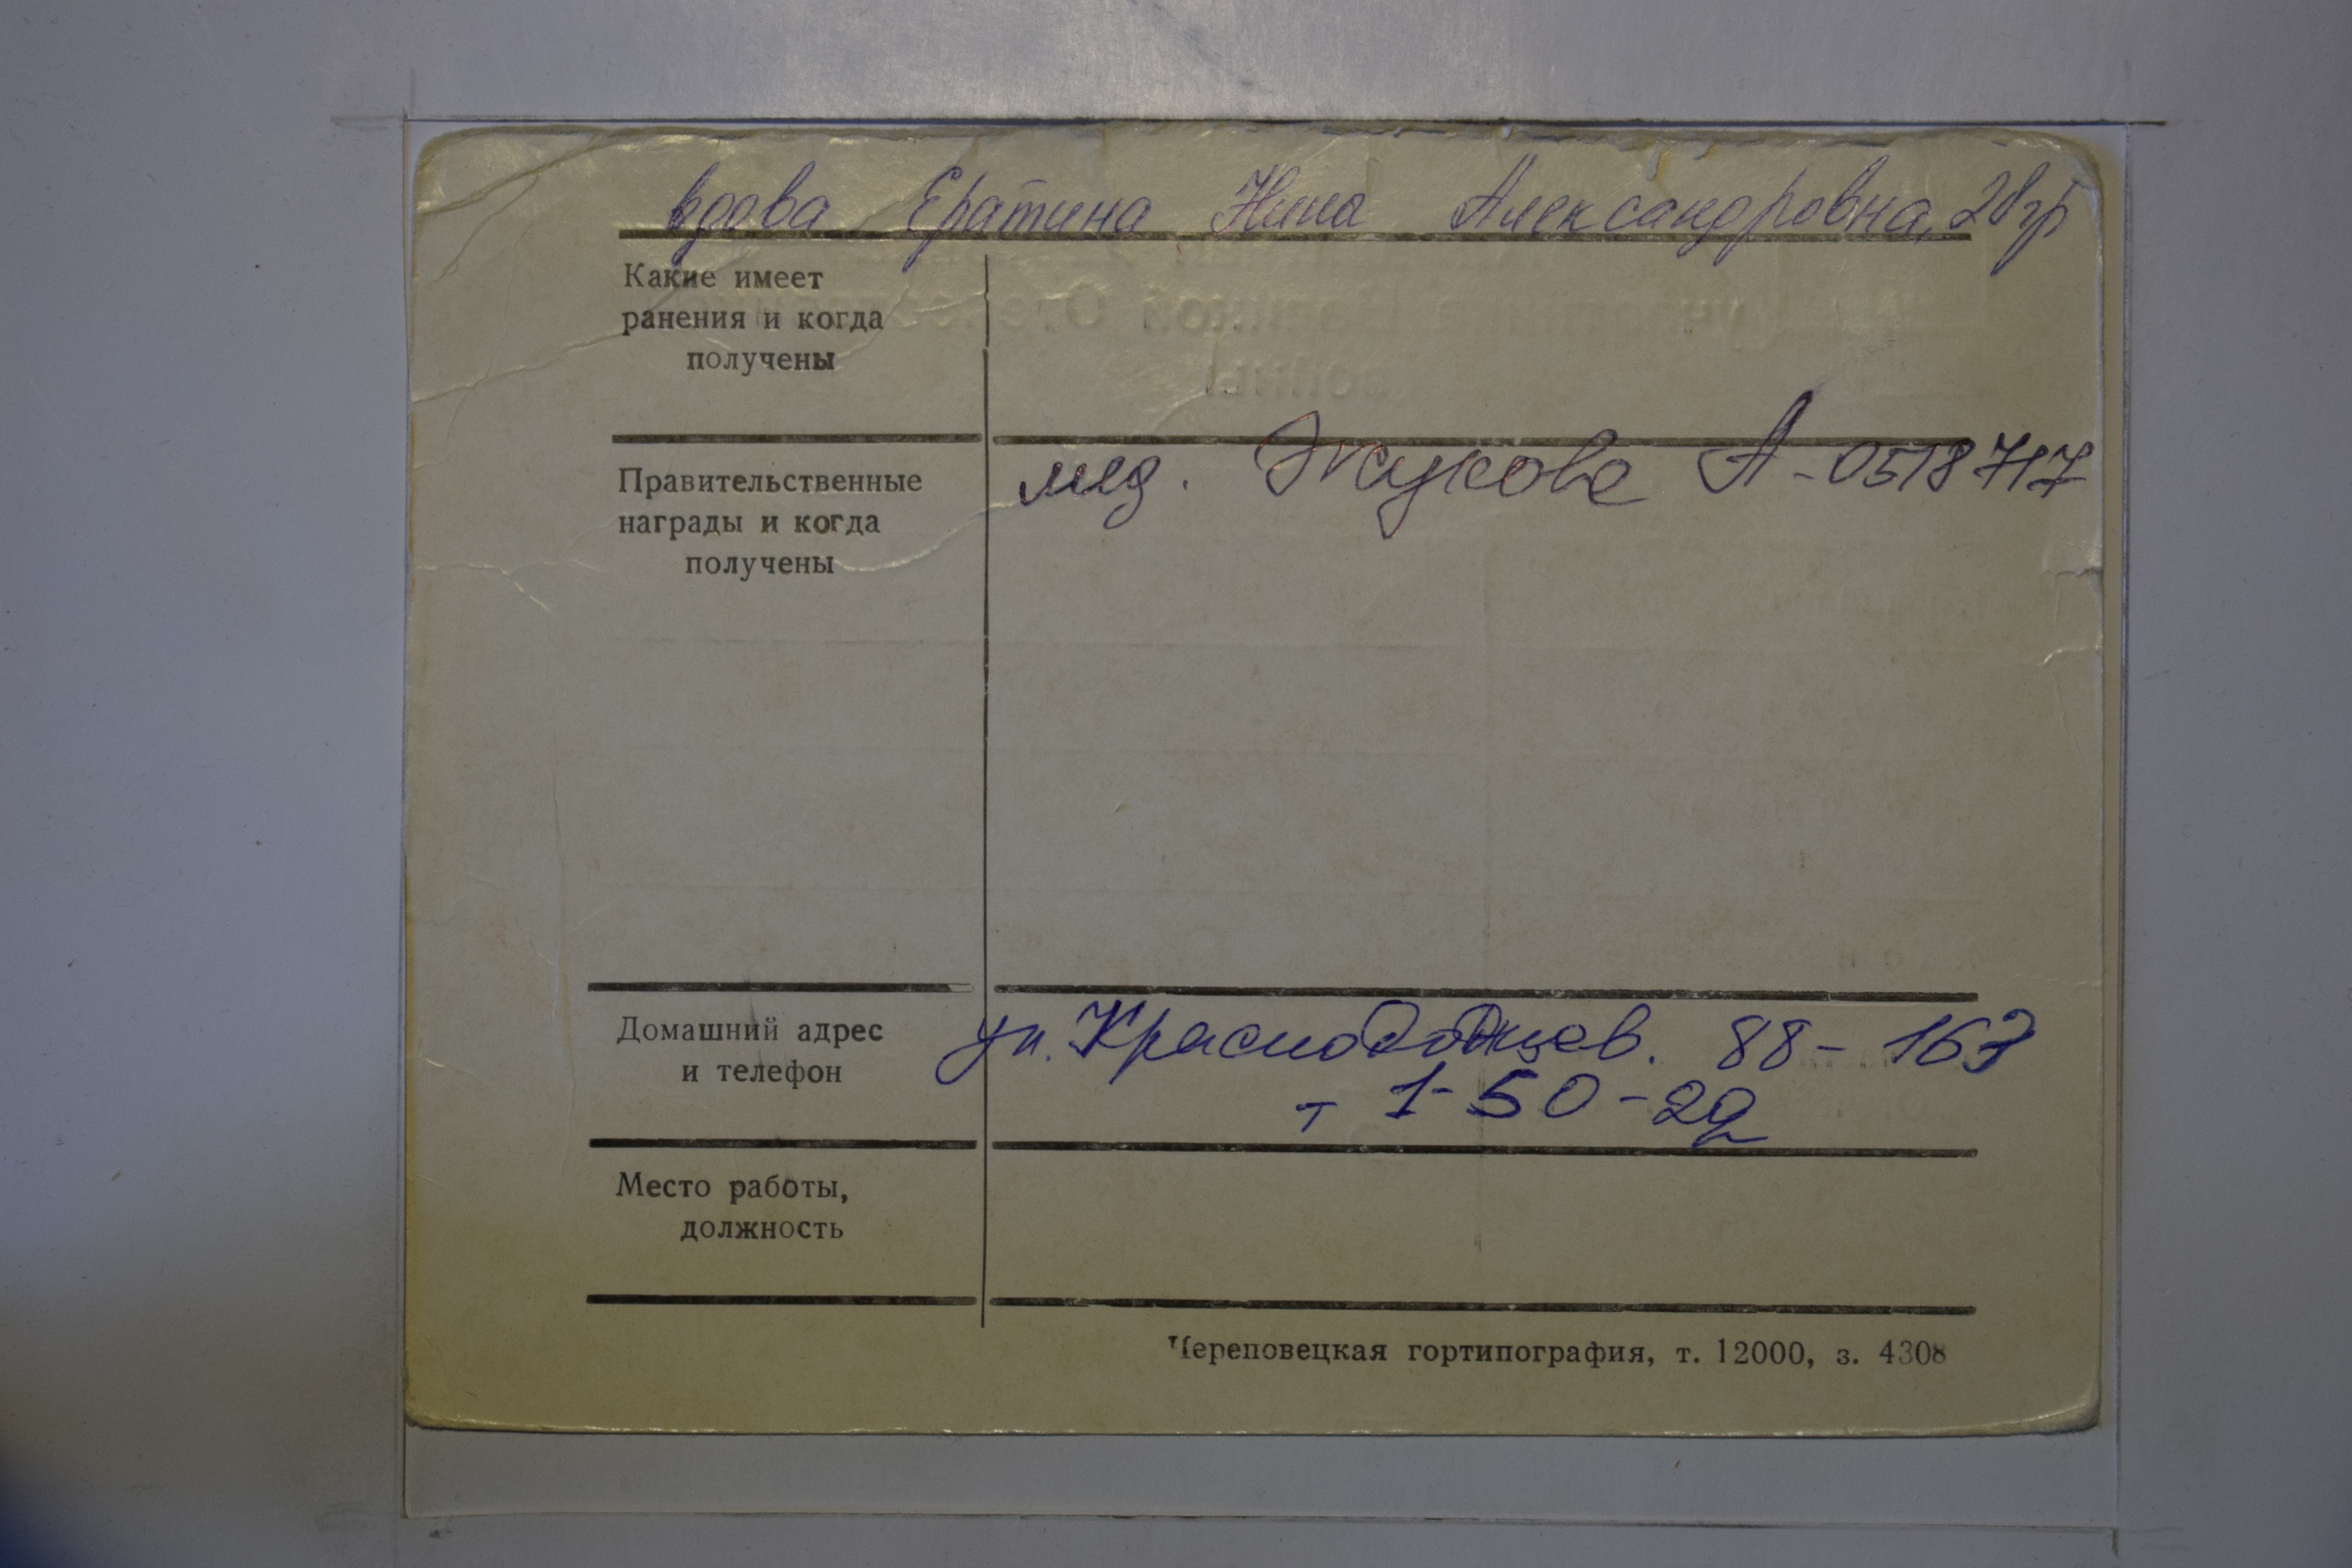 вдова Ератина Нина Александровна, 28 гр
Какие имеет
ранения и когда
получены
Правительственные
награды и когда
получены
мед. Жукова А-0518717
Домашний адрес
и телефон
ул. Краснодонцев. 88-167
т 1-50-29
Место работы,
должность
Череповецкая гортипография, т. 12000, з. 4308